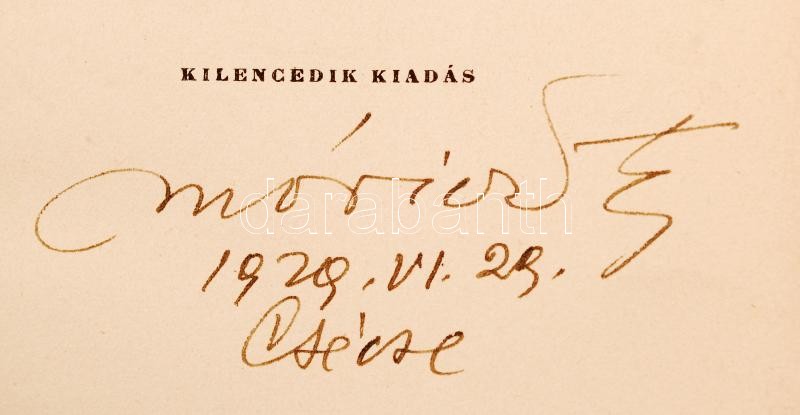 KILENCEDIK KIADÁS
Móricz Zs
darabanth
1929. VI. 29.
Csécse